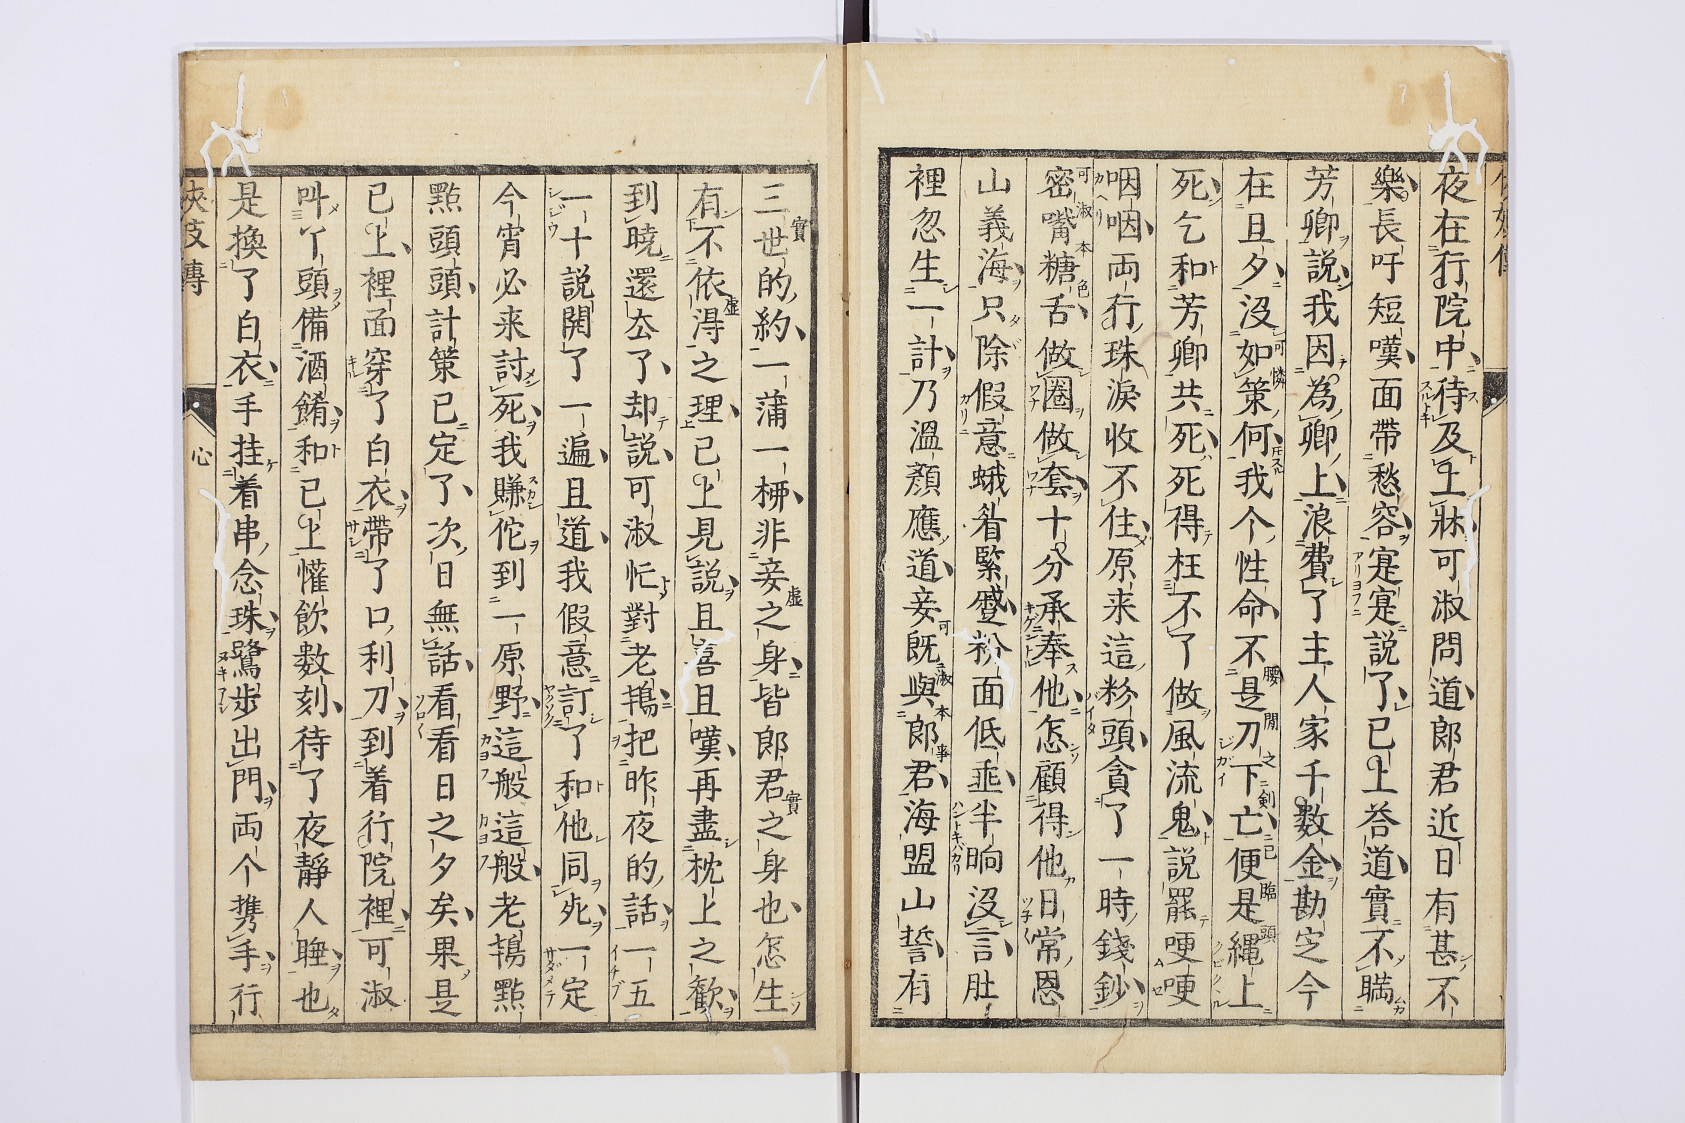 夜在行院中待及上牀可淑問道郎君近日有甚不
樂長吁短嘆面帶愁容寔寔説了已上荅道實不瞞
芳卿説我因為卿上浪費了主人家千數金勘定今
在旦夕沒如策何我个性命不是刀下亡便是縄上
死乞和芳卿共死死得枉不了做風流鬼説罷哽哽
咽咽両行珠淚收不住原来這粉頭貪了一時錢鈔
密嘴糖舌做圈做套十分承奉他怎顧得他日常恩
山義海只除假意蛾眉緊蹙粉面低垂半晌沒言肚
裡忽生一計乃溫顏應道妾既與郎君海盟山誓有
三世的約一蒲一柳非妾之身皆郎君之身也怎生
有不依淂之理已上見説且喜且嘆再盡枕上之歡
到曉還去了却説可淑忙對老鴇把昨夜的話一五
一十説開了一遍且道我假意訂了和他同死一定
今宵必来討死我賺佗到一原野這般這般老鴇點
點頭頭計策已定了次日無話看看日之夕矣果是
已上裡面穿了白衣帶了口利刀到着行院裡可淑
叫丫頭備酒餚和已上懽飲數刻待了夜靜人睡也
是換了白衣手挂着串念珠鷺步出門両个携手行
俠妓傳
心